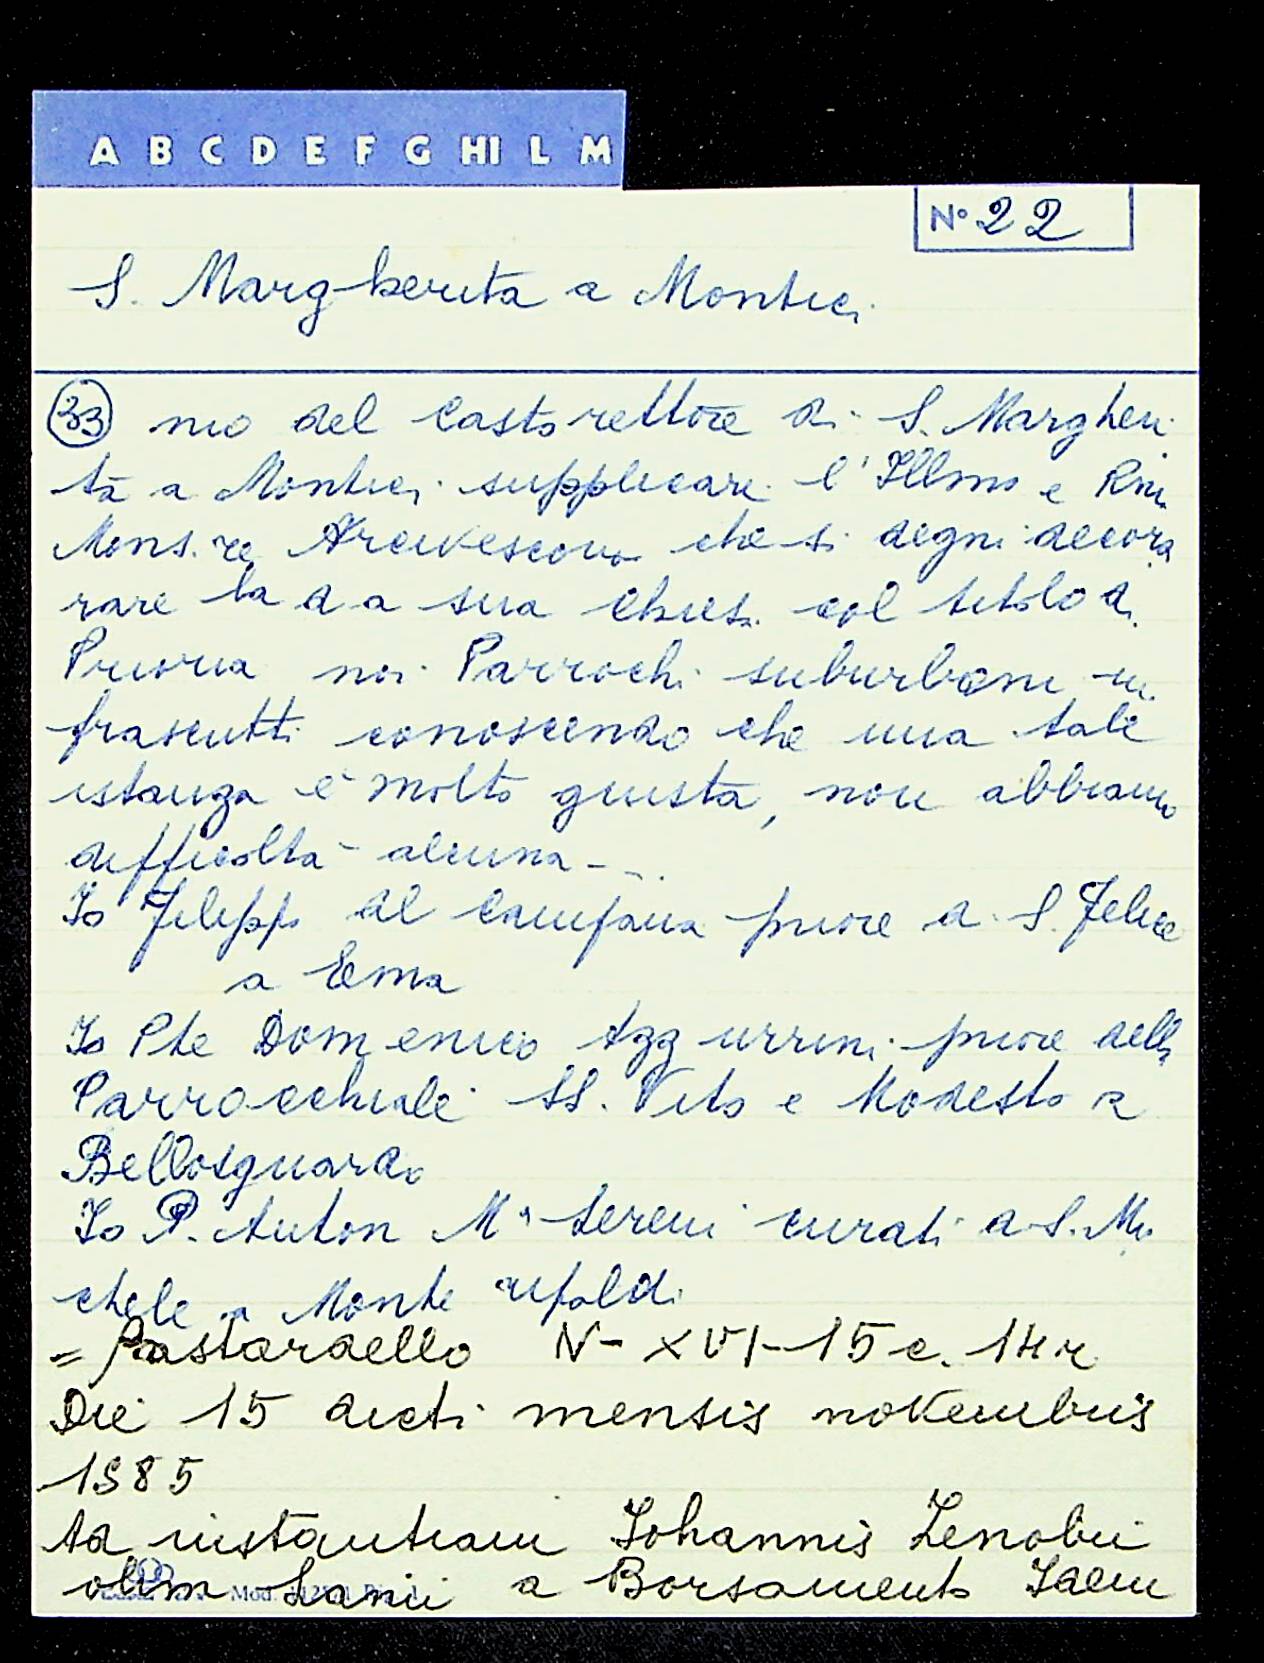 A B C D E F G HI L M
N° 22
S. Margherita a Montici
33 mo del Casto rettore di S. Margheri
ta a Montici supplicare l'Illmo e Rm.
Mons. re Arcivescovo che si degni decora
rare la d a sua Chies. col titolo di
Prioria noi Parrochi suburbani in
frascritti conoscendo che una tale
istanza è molto giusta, non abbiamo
difficoltà alcuna -
Io Filippo del Campana priore a S. Felice
a Ema
Io Pte Domenico Azzurrini priore della
Parrocchiale SS. Vito e Modesto a
Bellosguardo
Io P. Anton Mª Sereni curato a S. Mi
chele a Monte ripaldi
= Pastoraello N- XVI-15 c. 14 r
Die 15 dicti mensis novembris
1585
Ad instantiam Johannis Zenobii
olim a Borsamento Idem